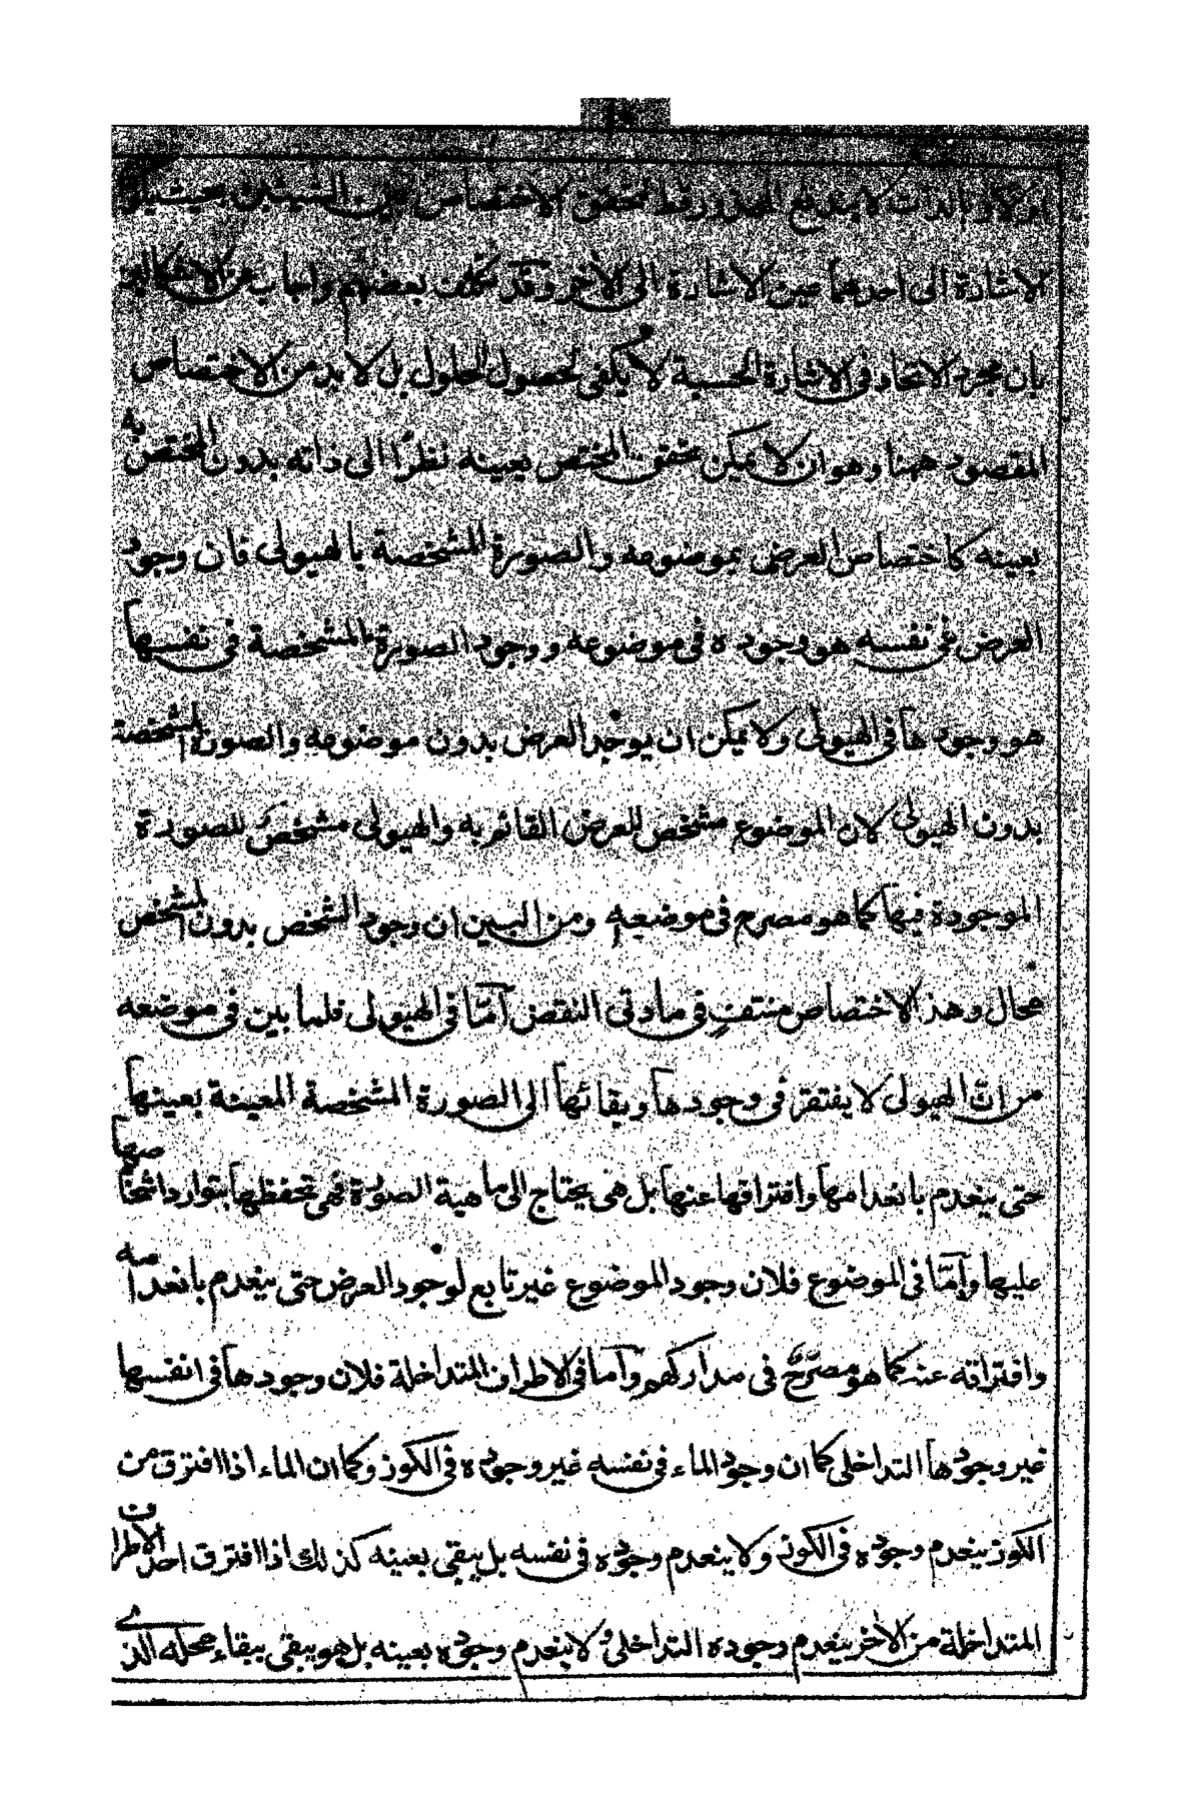 او لا و بالذات لا يندفع المحذور قط لتحقق الاختصاص بين الشيئين بحيث يكون
الاشارة الى احدهما عين الاشارة الى الآخر وقد تكلف بعضهم واجاب عن الاشكال
بان مجرد الاتحاد فى الاشارة الحسية لا يكفى لحصول الحلول بل لا بد من الاختصاص
المقصود ههنا وهو ان لا يمكن تحقق المختص بعينه نظرًا الى ذاته بدون المختص به
بعينه كاختصاص العرض بموضوعه والصورة المشخصة بالهيولى فان وجود
العرض فى نفسه هو وجوده فى موضوعه ووجود الصورة المشخصة فى نفسها
هو وجودها فى الهيولى ولا يمكن ان يوجد العرض بدون موضوعه والصورة المشخصة
بدون الهيولى لان الموضوع مشخص للعرض القائم به والهيولى مشخص للصورة
الموجودة فيها كما هو مصرح فى موضعه ومن البين ان وجود الشخص بدون المشخص
محال وهذا الاختصاص منتفٍ فى مادتى النقض اما فى الهيولى فلما بين فى موضعه
من ان الهيولى لا يفتقر فى وجودها وبقائها الى الصورة المشخصة المعينة بعينها
حتى ينعدم بانعدامها وافتراقها عنها بل هى يحتاج الى ماهية الصورة فهى تحفظها بتوارد اشخاصها
عليها واما فى الموضوع فلان وجود الموضوع غير تابع لوجود العرض حتى ينعدم بانعدامه
وافتراقه عنه كما هو مصرح فى مداركهم واما فى الاطراف المتداخلة فلان وجودها فى انفسها
غير وجودها التداخلى كما ان وجود الماء فى نفسه غير وجوده فى الكوز وكما ان الماء اذا افترق من
الكوز ينعدم وجوده فى الكوز ولا ينعدم وجوده فى نفسه بل يبقى بعينه كذلك اذا افترق احد الاطراف
المتداخلة من الآخر ينعدم وجوده التداخلى ولا ينعدم وجوده بعينه بل هو يبقى ببقاء محله الذى